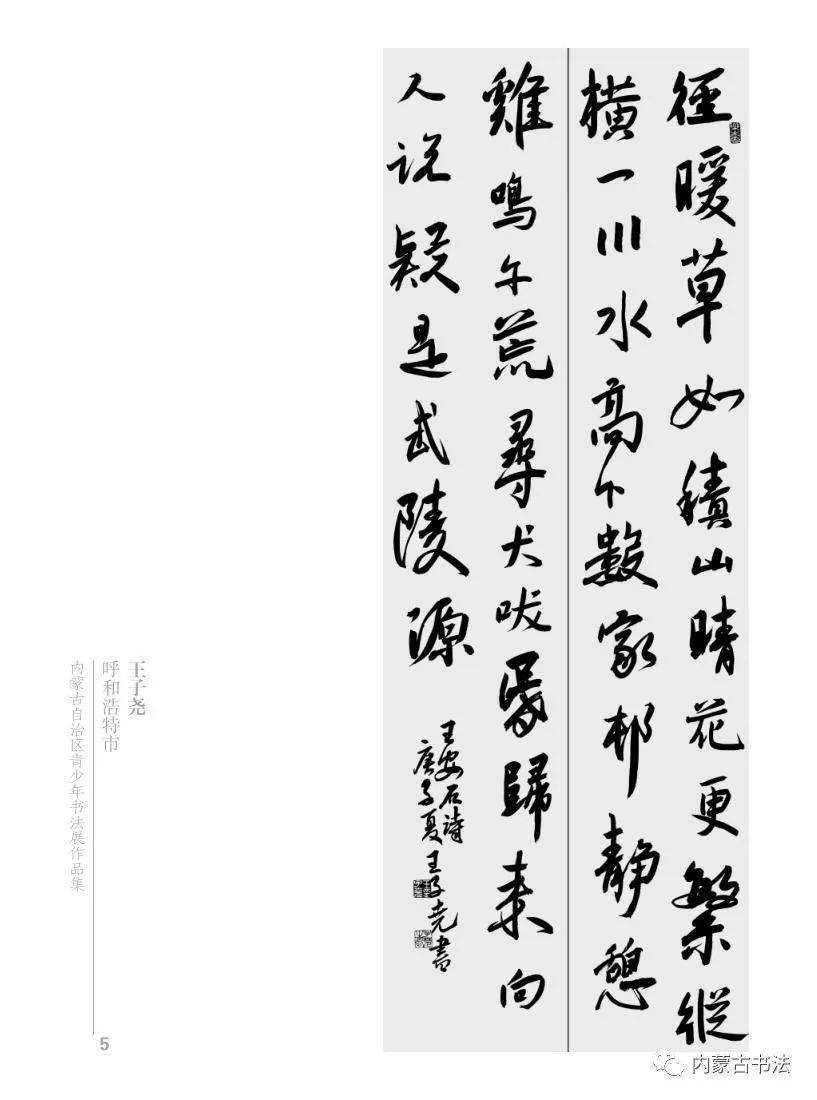 徑暖草如積山晴花更繁縱
橫一川水高下數家邨靜憩
雞鳴午荒尋犬吠昏歸来向
人说疑是武陵源
王安石诗
庚子夏王子尧書
王子尧
呼和浩特市
内蒙古自治区青少年书法展作品集
5
内蒙古书法